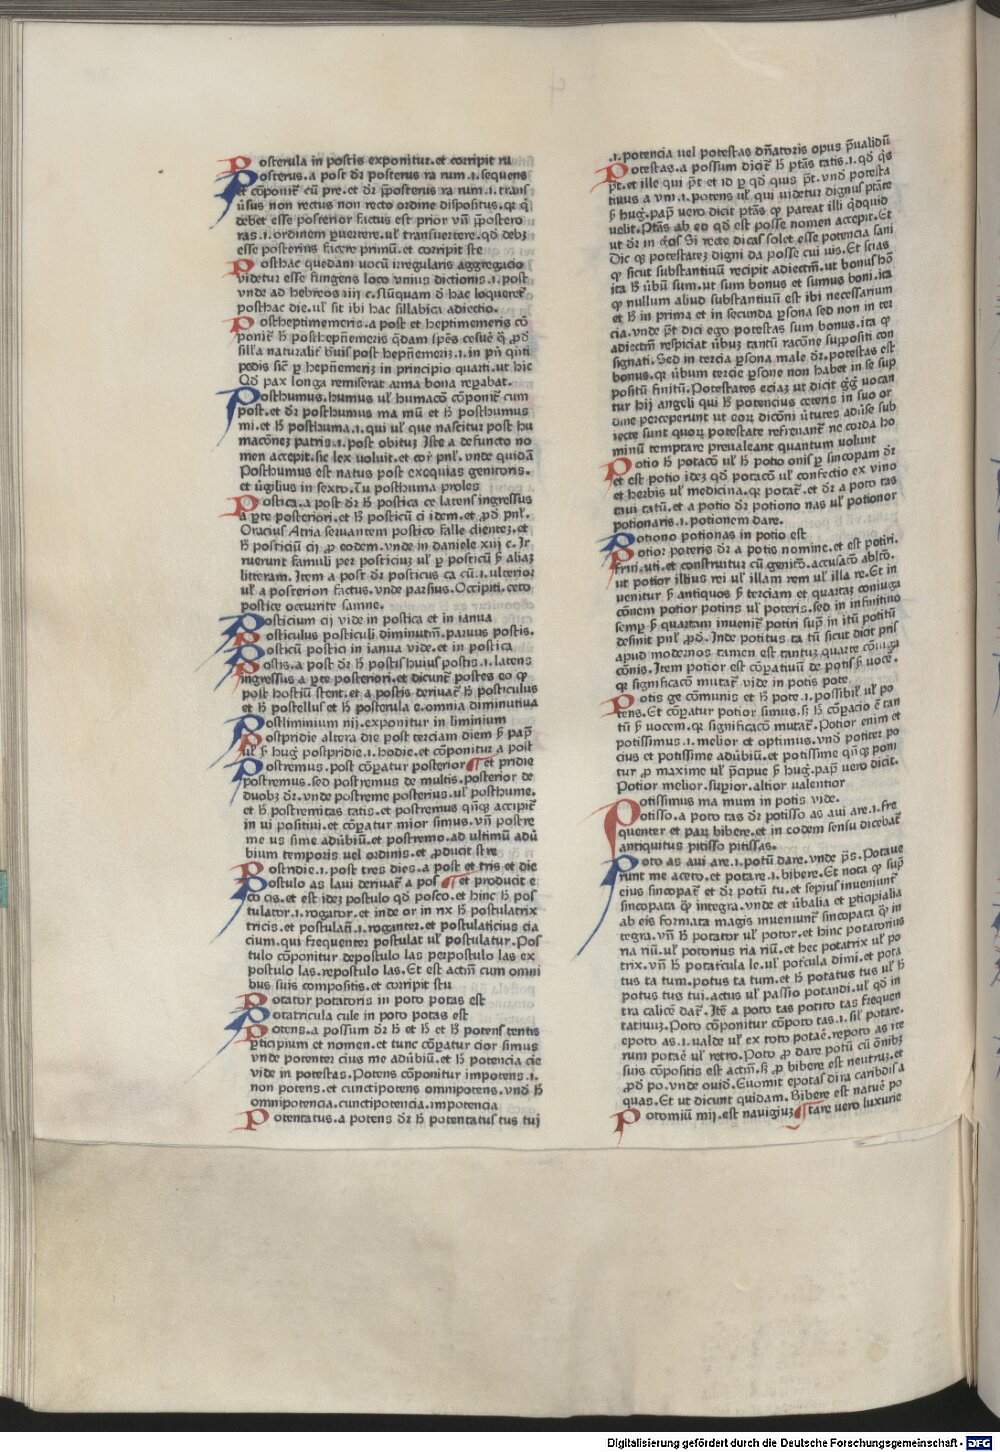 Posterula in postis exponitur.et corripit ru
Posterus.a post dr̄ posterus ra rum.i.sequens
et cōponit̄ cū pre.et dr̄ p̄posterus ra rum.i.trans
ūsus non rectus non recto ordine dispositus.qꝛ q̄
debet esse posterior factus est prior vn̄ p̄postero
ras.i.ordinem ꝑuertere.ul̄ transuertere.qd̄ debꝫ
esse posterius facere primū.et corripit ste
Posthac quedam uocū irregularis aggregacio
videtur esse fungens loco vnius dictionis.i.post
vnde ad hebreos iiii c.Nūquam d̄ hac loqueret̄
posthac die.ul̄ sit ibi hac sillabica adiectio.
Postheptimemeris.a post et heptimemeris cō
ponit̄ h̄ posthepn̄emeris q̄dam sp̄es cesuē q̄ ꝓd̄
sill'a naturalit̄ b̄uis post hepn̄emeris.i.in pn̄ q̄nti
pedis sic̄ ꝑ hepn̄emeris in principio quarti.ut hic
Qd̄ pax longa remiserat arma bona reꝑabat.
Posthumus.humus ul̄ humacō cōponit̄ cum
post.et dr̄ posthumus ma mū et h̄ posthumus
mi.et h̄ posthuma.i.qui ul̄ que nascitur post hu
macōneꝫ patris.i.post obituꝫ Iste a defuncto no
men accepit.sic lex uoluit.et cor̄ pnl̄.vnde quidā
Posthumus est natus post exequias genitoris.
et ūgilius in sexto.Tu posthuma proles
Postica.a post dr̄ h̄ postica ce latens ingressus
a ꝑte posteriori.et h̄ posticū ci idem.et ꝓd̄ pnl̄.
Oracius Atria seruantem postico falle clienteꝫ.et
h̄ posticiū cij ꝓ eodem.vnde in daniele xiii c.Ir
ruerunt famuli per posticiuꝫ ul̄ ꝑ posticū ẜ aliaꝫ
litteram.Item a post dr̄ posticus ca cū.i.ulterior
ul̄ a posterior factus.vnde parsius.Occipiti.ceto
postice occurite sanne.
Posticium cij vide in postica et in ianua
Posticulus posticuli diminutiū.paruus postis.
Posticū postici in ianua vide.et in postica
Postis.a post dr̄ h̄ postis huius postis.i.latens
ingressus a ꝑte posteriori.et dicunt̄ postes eo qꝛ
post hostiū stent.et a postis deriuat̄ h̄ posticulus
et h̄ postellus et h̄ posterula e.omnia diminutiua
Postliminium nij.exponitur in liminium
Postpridie altera die post terciam diem ẜ pap̄
ul̄ ẜ huḡ postpridie.i.hodie.et cōponitur a post
Postremus.post cōꝑatur posterior ¶et pridie
postremus.sed postremus de multis.posterior de
duobꝫ dr̄.vnde postreme posterius.ul̄ posthume.
et h̄ postremitas tatis.et postremus qn̄qꝫ accipit̄
in ui positiui.et cōꝑatur mior simus.vn̄ postre
me us sime adūbiū.et postremo.ad ultimū adū
bium temporis uel ordinis.et ꝓducit stre
Postridie.i.post tres dies.a post et tris et die
Postulo as laui deriuat̄ a pos ¶et producit e
co cis.et est ideꝫ postulo qd̄ posco.et hinc h̄ pos
tulator.i.rogator.et inde or in nx h̄ postulatrix
tricis.et postulan̄.i.roganteꝫ.et postulaticius cia
cium.qui frequenter postulat ul̄ postulatur.Pos
tulo cōponitur depostulo las perpostulo las ex
postulo las.repostulo las.Et est actiū cum omni
bus suis compositis.et corripit stu
Potator potatoris in poto potas est
Potatricula cule in poto potas est
Potens.a possum dr̄ h̄ et h̄ et h̄ potens tentis
ꝑticipium et nomen.et tunc cōꝑatur cior simus
vnde potenter cius me adūbiū.et h̄ potencia cie
vide in potestas.Potens cōponitur impotens.i.
non potens.et cunctipotens omnipotens.vnd̄ h̄
omnipotencia.cunctipotencia.impotencia
Potentatus.a potens dr̄ h̄ potentatus tus tui
.i.potencia uel potestas dn̄atoris opus p̄ualidū
Potestas.a possum dicit̄ h̄ ptās tatis.i.qd̄ q̄s
pt̄.et ille qui pt̄ et id ꝑ qd̄ quis pt̄.vnd̄ potesta
tiuus a vm.i.potens ul̄ qui videtur dignus ptāte
ẜ huḡ.pap̄ uero dicit ptās qꝛ pateat illi q̄dquid
uelit.Ptās ab eo qd̄ est posse nomen accepit.Et
ut dr̄ in ḡcis Si recte dicas solet esse potencia sani
Dic qꝛ potestateꝫ digni da posse cui uis.Et scias
qꝛ sicut substantiuū recipit adiectiū.ut bonus hō
ita h̄ ūbū sum.ut sum bonus et sumus boni.ita
qꝛ nullum aliud substantiuū est ibi necessarium
et h̄ in prima et in secunda ꝑsona sed non in ter
cia.vnde pt̄ dici ego potestas sum bonus.ita qꝛ
adiectiū respiciat ūbuꝫ tantū racōne suppositi con
signati.Sed in tercia ꝑsona male dr̄.potestas est
bonus.qꝛ ūbum tercie ꝑsone non habet in se sup
positū finitū.Potestates eciaꝫ ut dicit ḡḡ uocan
tur hij angeli qui h̄ potencius ceteris in suo or
dine perceperunt ut eoꝝ dicōni ūtutes aduerse sub
iecte sunt quoꝝ potestate refrenant̄ ne corda ho
minū temptare preualeant quantum uolunt
Potio h̄ potacō ul̄ h̄ potio onis ꝑ sincopam dr̄
et est potio ideꝫ qd̄ potacō ul̄ confectio ex vino
et herbis ul̄ medicina.qꝛ potat̄.et dr̄ a poto tas
taui tatū.et a potio dr̄ potiono nas ul̄ potionor
potionaris.i.potionem dare.
Potiono potionas in potio est
Potior poteris dr̄ a potis nomine.et est potiri.
frui.uti.et construitur cū genitō.accusacō ablcō.
ut potior illius rei ul̄ illam rem ul̄ illa re.Et in
uenitur ẜ antiquos ẜ terciam et quartaꝫ coniuga
cōnem potior potiris ul̄ poteris.sed in infinitiuo
semꝑ ẜ quartam inuenit̄ potiri sup̄ in itū potitū
definit pnl̄ ꝓd̄.Inde potitus ta tū sicut dict p̄is
apud modernos tamen est tantuꝫ quarte cōiuga
cōnis.Item potior est cōꝑatiuū de potis ẜ uocē.
qꝛ significacō mutat̄.vide in potis pote.
Potis ge cōmunis et h̄ pote.i.possibil' ul̄ po
tens.Et cōꝑatur potior simus.ẜ h̄ cōꝑacio ē tan
tū ẜ uocem.qꝛ significacō mutat̄.Potior enim et
potissimus.i.melior et optimus.vnd̄ potiter po
cius et potissime adūbiū.et potissime qn̄qꝫ poni
tur ꝓ maxime ul̄ p̄cipue ẜ huḡ.pap̄ uero dicit.
Potior melior.suꝑior.altior valentior
Potissimus ma mum in potis vide.
Potisso.a poto tas dr̄ potisso as aui are.i.fre
quenter et paꝝ bibere.et in eodem sensu dicebat̄
antiquitus pitisso pitissas.
Poto as aui are.i.potū dare.vnde p̄s.Potaue
runt me aceto.et potare.i.bibere.Et nota qꝛ sup̄
eius sincopat̄ et dr̄ potū tu.et sepius inueniunt̄
sincopata q̄ integra.vnde et ūbalia et ꝑticipialia
ab eis formata magis inueniunt̄ sincopata q̄ in
tegra.vn̄ h̄ potator ul̄ potor.et hinc potatorius
ria riū.ul̄ potorius ria riū.et hec potatrix ul̄ po
trix.vn̄ h̄ potat̄cula le.ul̄ pot̄cula dimi.et pota
tus ta tum.potus ta tum.et h̄ potatus tus ul̄ h̄
potus tus tui.actus ul̄ passio potandi.ul̄ qd̄ in
tra calicē dat̄.Itē a poto tas potito tas frequen
tatiuuꝫ.Poto cōponitur cōpoto tas.i.sil̄ potare.
epoto as.i.ualde ul̄ ex toto potaē.repoto as ite
rum potaē ul̄ retro.Poto ꝓ dare potū cū ōnibꝫ
suis cōpositis est actiū.ẜ ꝓ bibere est neutruꝫ.et
ꝓd̄ po.vnde ouid̄.Euomit epotas dira caribdis a
quas.Et ut dicunt quidam.Bibere est natuē po
Potomiū mij.est nauigiuꝫ ¶tare uero luxurie
Digitalisierung gefördert durch die Deutsche Forschungsgemeinschaft - DFG